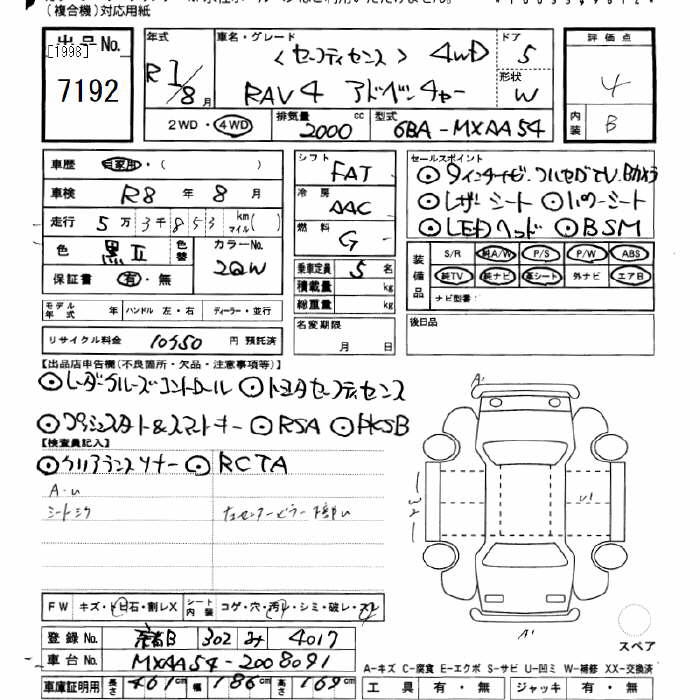 (複合機)対応用紙
出品No. [1998] 7192
年式 R1/8月
車名・グレード <セーフティセンス> 4WD
RAV4 アドベンチャー
ドア 5
形状 W
評価点 4
内装 B
2WD・4WD 排気量 2000 cc 型式 6BA-MXAA54
車歴 自家用・( )
車検 R8年8月
走行 5万3千853 km マイル( )
色 黒Ⅱ 色替 カラーNo. 2QW
保証書 有・無
モデル年式 年 ハンドル 左・右 ディーラー・並行
リサイクル料金 10550 円 預託済
シフト FAT
冷房 AAC
燃料 G
乗車定員 5 名
積載量 kg
総重量 kg
名変期限 月 日
セールスポイント
⊙9インチナビ・フルセグTV・Bカメラ
⊙レザーシート ⊙パワーシート
⊙LEDヘッド ⊙BSM
装備品 S/R 純A/W P/S P/W ABS
純TV 純ナビ 革シート 外ナビ エアB
ナビ型番:
後日品
【出品店申告欄(不良箇所・欠品・注意事項等)】
⊙レーダークルーズコントロール ⊙トヨタセーフティセンス
⊙プッシュスタート&スマートキー ⊙RSA ⊙PKSB
【検査員記入】
⊙クリアランスソナー ⊙RCTA
A・U
シートミク
A'
U'
A'
FW キズ・トビ石・割レX シート内装 コゲ・穴・汚レ・シミ・破レ・スレ
登録No. 京都 302 み 4017
車台No. MXAA54-2008091
車庫証明用 長さ 461cm 幅 186cm 高さ 169cm
スペア
A-キズ C-腐食 E-エクボ S-サビ U-凹ミ W-補修 XX-交換済
工具 有・無 ジャッキ 有・無